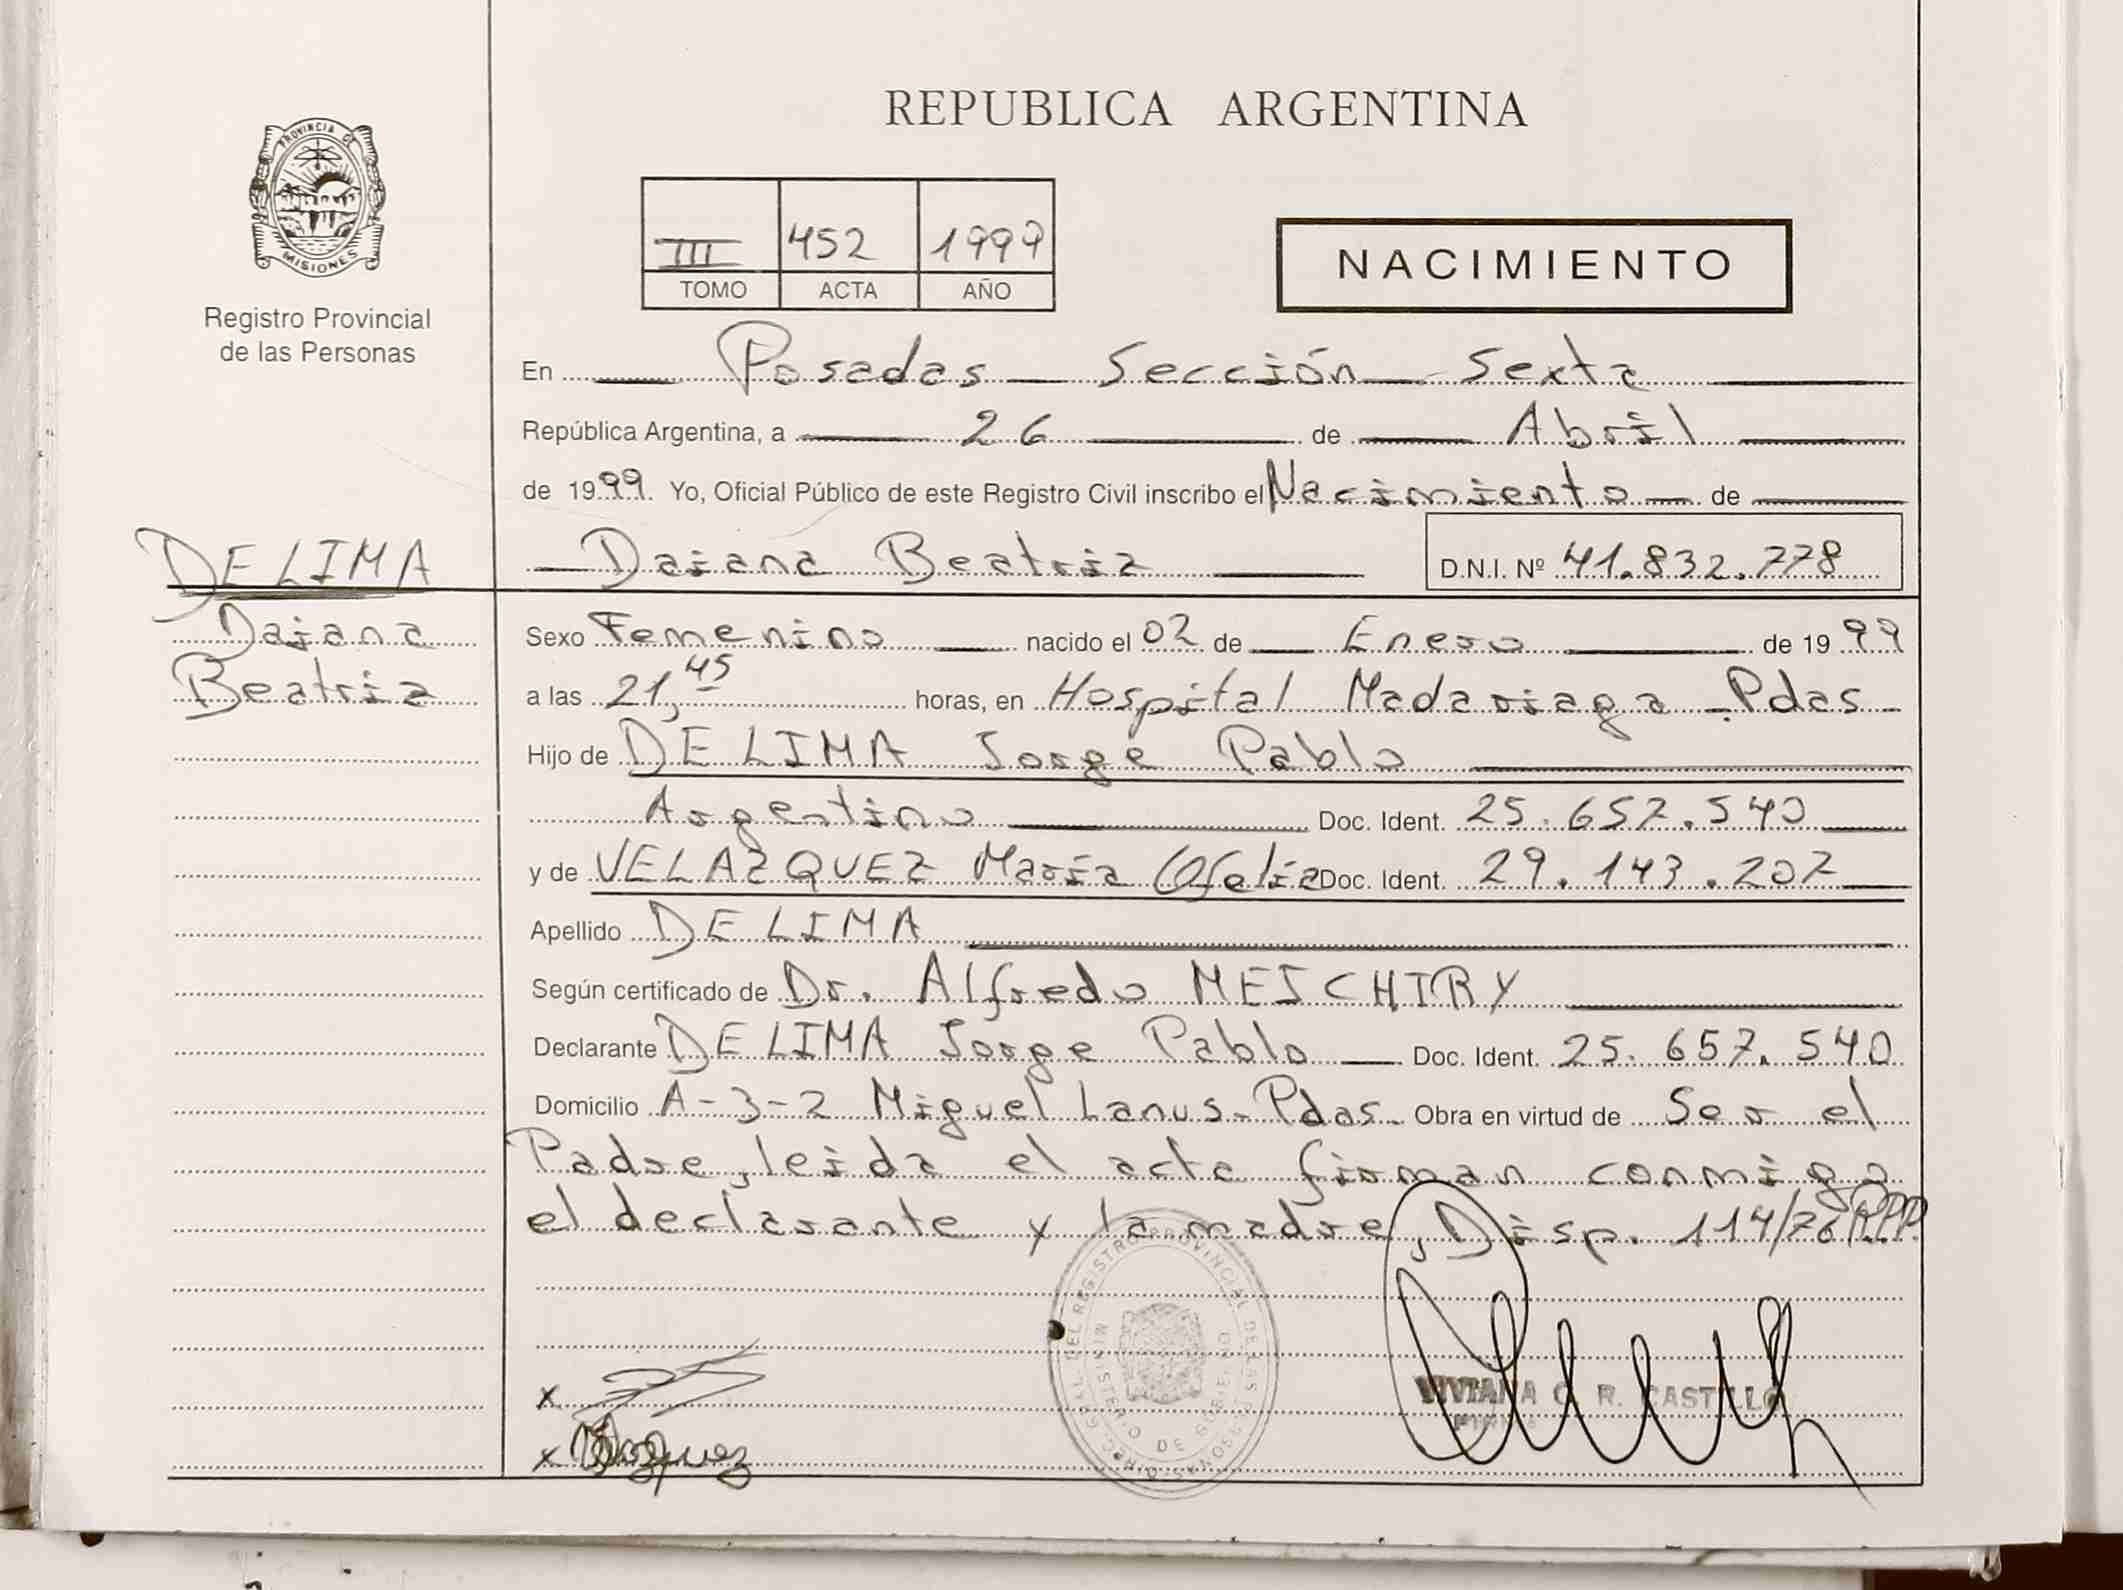 REPUBLICA ARGENTINA
PROVINCIA DE
MISIONES
Registro Provincial
de las Personas
III 452 1999
TOMO ACTA AÑO
NACIMIENTO
En Posadas Sección Sexta
República Argentina, a 26 de Abril
de 1999. Yo, Oficial Público de este Registro Civil inscribo el Nacimiento de
DE LIMA
Daiana
Beatriz
Daiana Beatriz D.N.I. Nº 41.832.778
Sexo Femenino nacido el 02 de Enero de 1999
a las 21,45 horas, en Hospital Madariaga - Pdas -
Hijo de DE LIMA Jorge Pablo
Argentino Doc. Ident. 25.657.540
y de VELAZQUEZ María Ofelia Doc. Ident. 29.143.207
Apellido DE LIMA
Según certificado de Dr. Alfredo MESCHIRY
Declarante DE LIMA Jorge Pablo Doc. Ident. 25.657.540
Domicilio A-3-2 Miguel Lanus - Pdas. Obra en virtud de Ser el
Padre, leida el acta firman conmigo
el declarante y la madre, Disp. 114/76 R.P.P.
DIREC. GRAL. DEL REGISTRO PROVINCIAL DE LAS PERSONAS
MINISTERIO DE GOBIERNO
VIVIANA C. R. CASTILLO
x
x